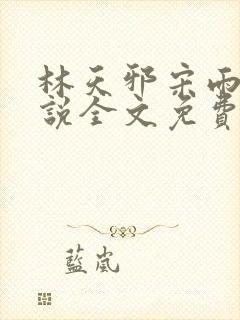 林天邪宋雨
說全文免費
藍嵐